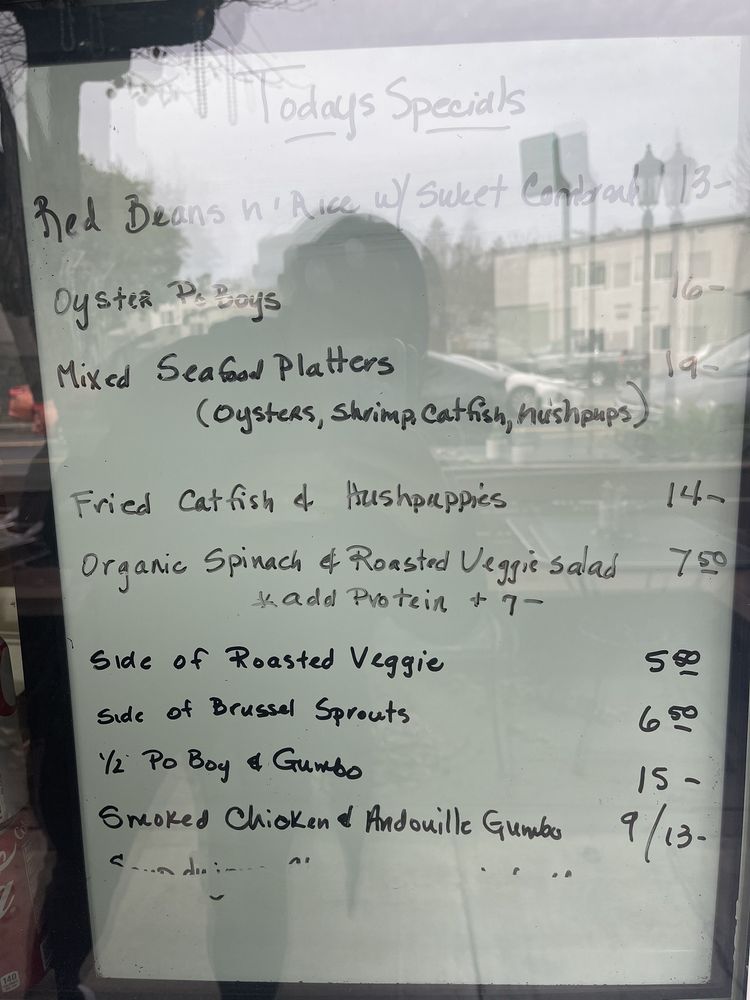 Todays Specials
Red Beans n' Rice w/ Sweet Cornbread 13-
Oyster Po Boys 16-
Mixed Seafood Platters 19-
(Oysters, Shrimp, Catfish, hushpups)
Fried Catfish & Hushpuppies 14-
Organic Spinach & Roasted Veggie salad 7 50
* add Protein + 7-
Side of Roasted Veggie 5 50
Side of Brussel Sprouts 6 50
1/2 Po Boy & Gumbo 15 -
Smoked Chicken & Andouille Gumbo 9/13-
140